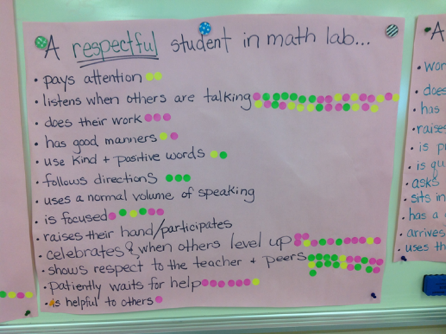 A respectful student in math lab...
• pays attention
• listens when others are talking
• does their work
• has good manners
• use kind + positive words
• follows directions
• uses a normal volume of speaking
• is focused
• raises their hand/participates
• celebrates when others level up
• shows respect to the teacher + peers
• patiently waits for help
• is helpful to others
A
• wor
• does
• has
• raises
• is p
• is qu
• asks
• sits in
• has a
• arrives
• uses th